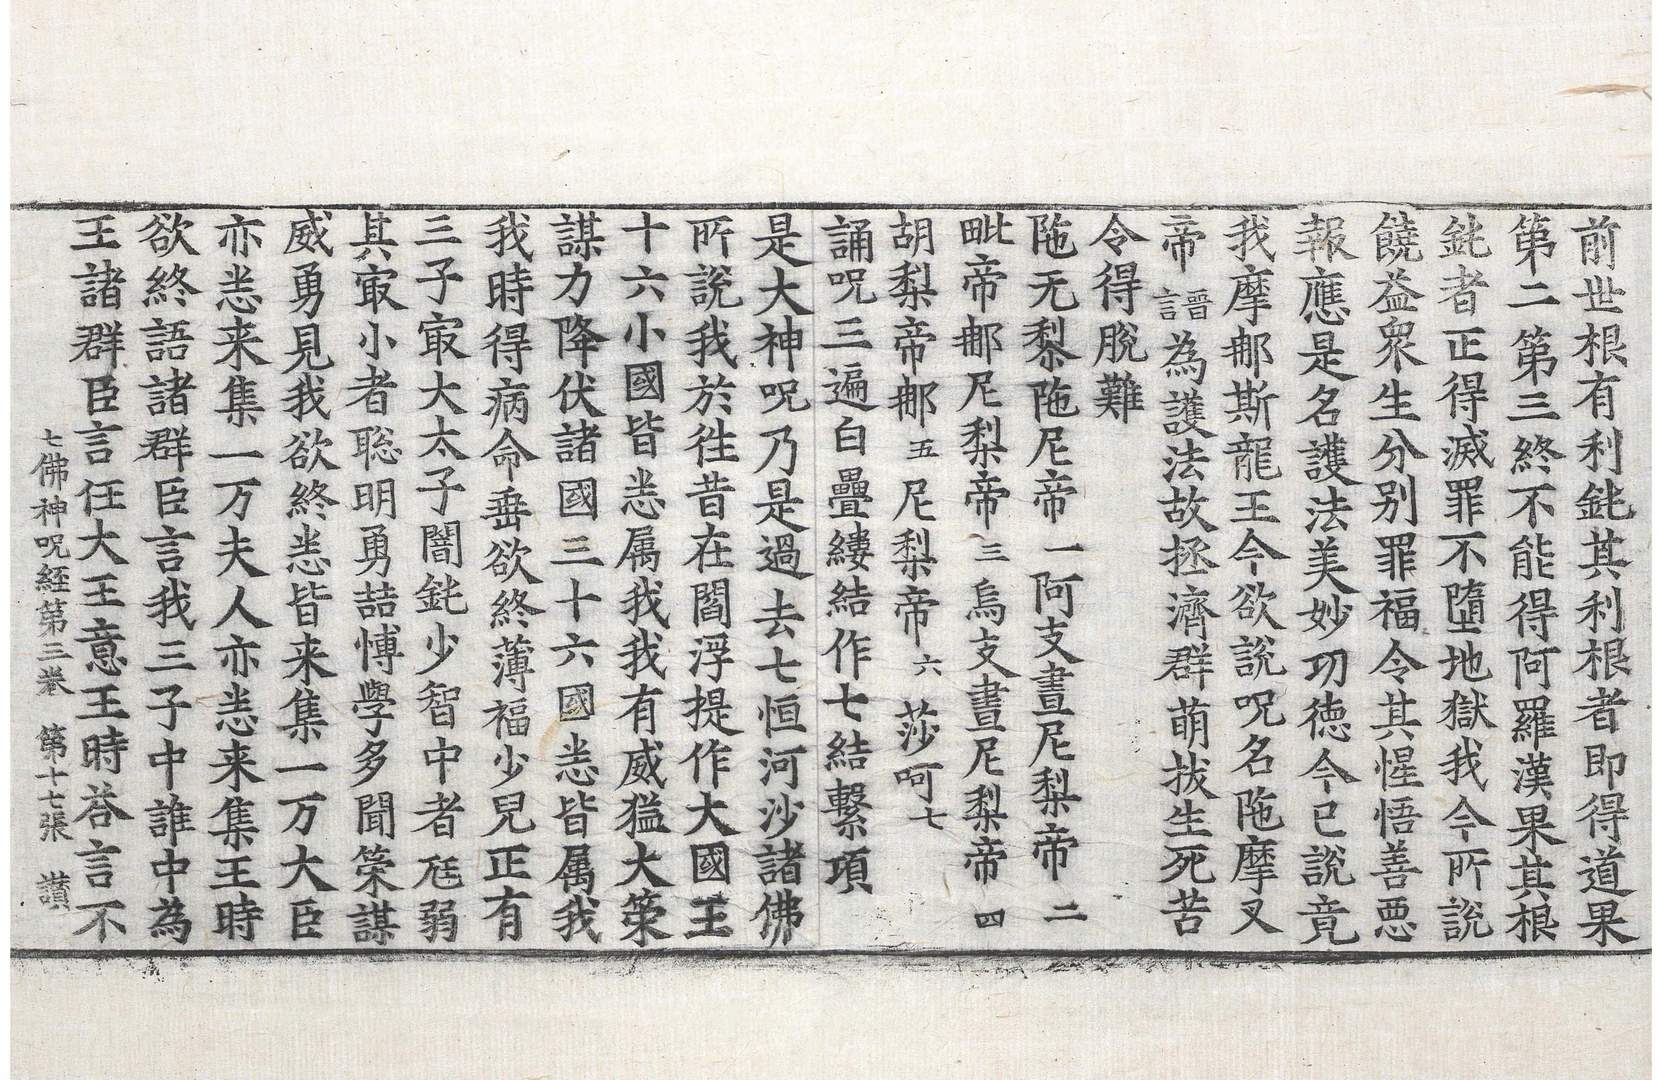 前世根有利鈍其利根者即得道果
第二第三終不能得阿羅漢果其根
鈍者正得滅罪不墮地獄我今所說
饒益衆生分別罪福令其惺悟善惡
報應是名護法美妙功徳今已說竟
我摩那斯龍王今欲說呪名陁摩叉
帝 晉言 為護法故拯濟群萌拔生死苦
令得脫難
陁无黎陁尼帝 一 阿支晝尼梨帝 二
毗帝那尼梨帝 三 烏支晝尼梨帝 四
胡梨帝那 五 尼梨帝 六 莎呵 七
誦呪三遍白疊縷結作七結繫項
是大神呪乃是過去七恒河沙諸佛
所說我於徃昔在閻浮提作大國王
十六小國皆悉属我我有威猛大策
謀力降伏諸國三十六國悉皆属我
我時得病命垂欲終薄福少兒正有
三子㝡大太子闇鈍少智中者尫弱
其㝡小者聡明勇喆愽學多聞策謀
威勇見我欲終悉皆来集一万大臣
亦悉来集一万夫人亦悉来集王時
欲終語諸群臣言我三子中誰中為
王諸群臣言任大王意王時荅言不
七佛神呪経第三卷 第十七張 讃